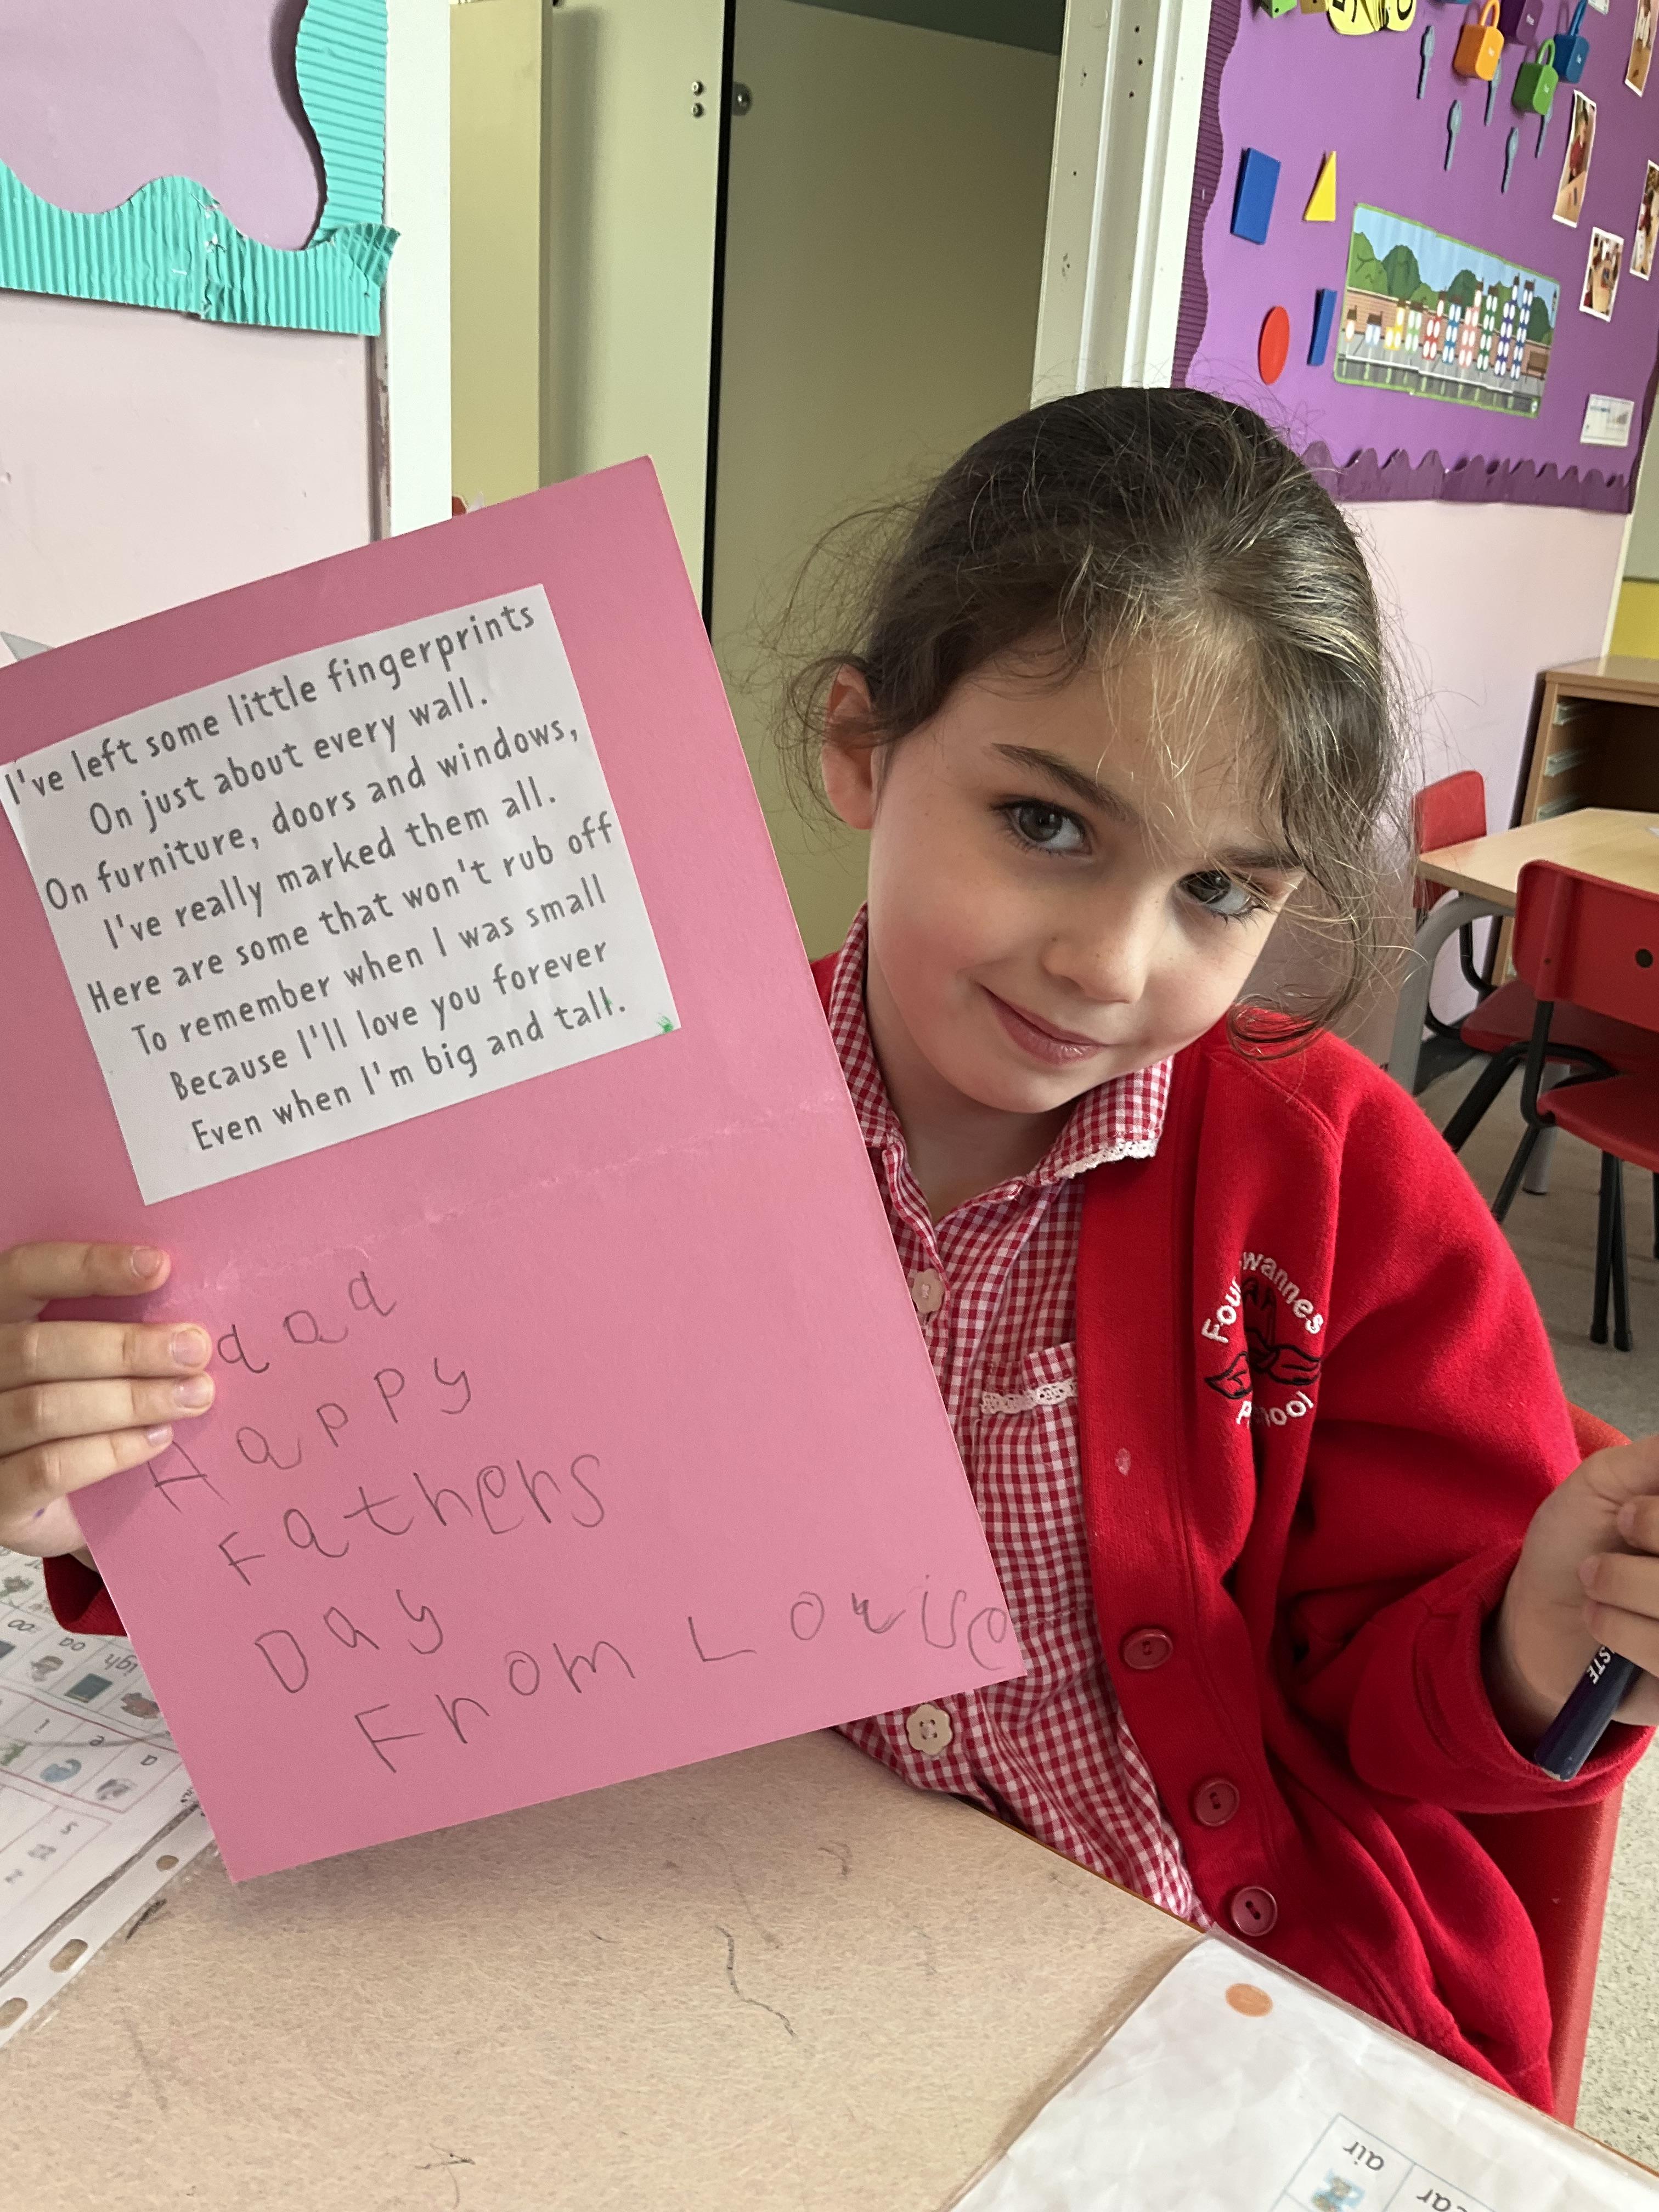 I've left some little fingerprints
On just about every wall.
On furniture, doors and windows,
I've really marked them all.
Here are some that won't rub off
To remember when I was small
Because I'll love you forever
Even when I'm big and tall.
dad
Happy
Fathers
Day
From Louise
air
ear
igh
oa
oo